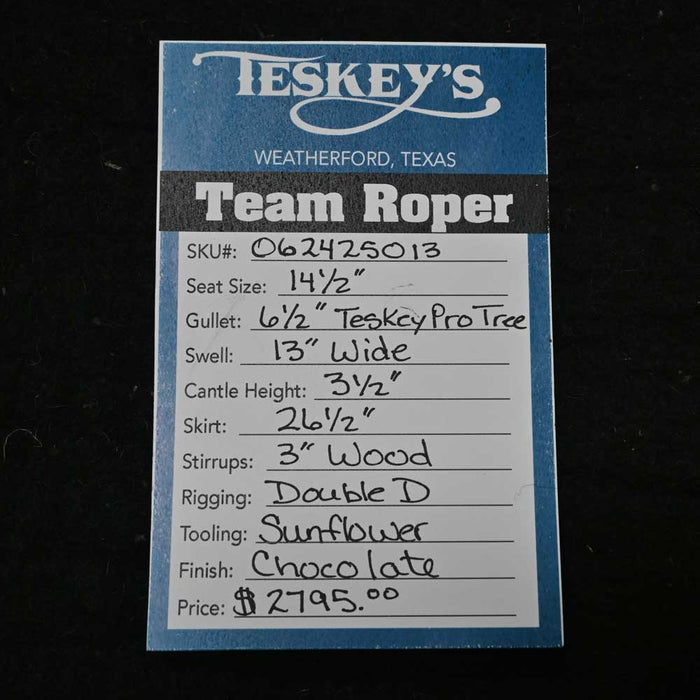 TESKEY'S
WEATHERFORD, TEXAS
Team Roper
SKU#: 062425013
Seat Size: 14 1/2"
Gullet: 6 1/2" Teskey Pro Tree
Swell: 13" Wide
Cantle Height: 3 1/2"
Skirt: 26 1/2"
Stirrups: 3" Wood
Rigging: Double D
Tooling: Sunflower
Finish: Chocolate
Price: $2795.00